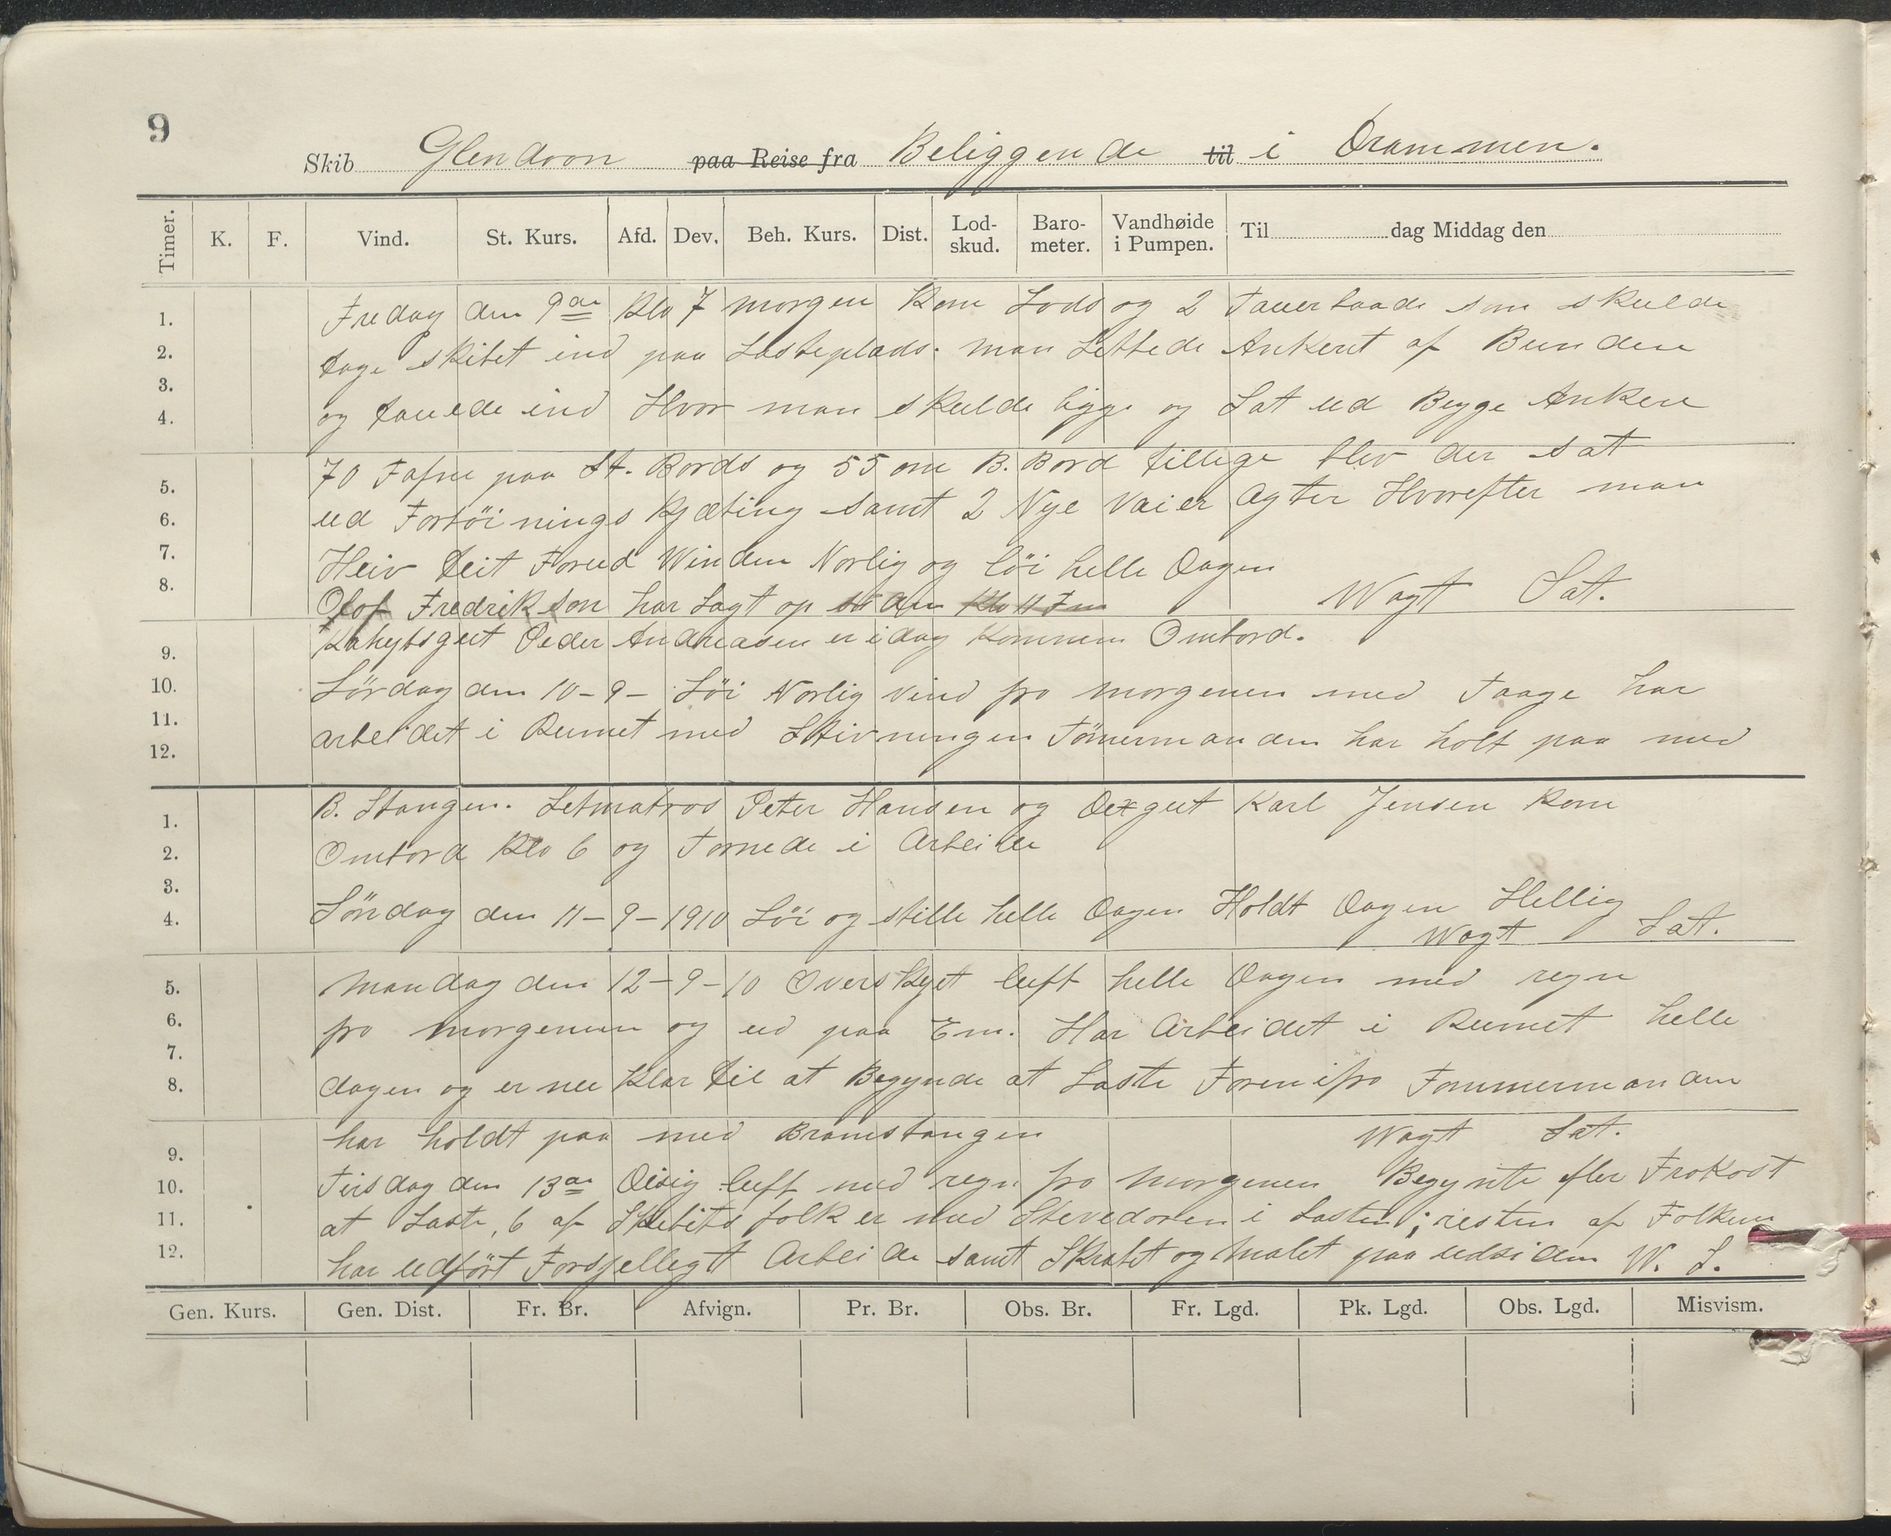 9
Skib Glendoon paa Reise fra Beliggende til i Drammen.
Timer. K. F. Vind. St. Kurs. Afd. Dev. Beh. Kurs. Dist. Lod-skud. Baro-meter. Vandhøide i Pumpen. Til dag Middag den
1. Fredag den 9de Klo 7 morgen kom Lods og 2 Tauerbaade som skulde
2. tage skibet ind paa Lasteplads. man Lettede Ankeret af Bunden
3.
4. og tauede ind Hvor man skulde ligge og Sat ud Begge Ankere
5. 70 Fafne paa St. Bords og 55 om B. Bord tillige blev der sat
6. ud Fortöinings Kjæting samt 2 Nye Vaier Agter Hvorefter man
7. Heiv teit Forud Winden Norlig og löi helle Dagen
8. Olof Fredrikson har Lagt op den Klo 11 Fm Wagt Sat.
9. Kahytsgut Peder Andreasen er idag kommen Ombord.
10. Lördag den 10-9- Löi Norlig vind fra morgenen med Taage har
11. arbeidet i Rumet med Skivningen Tömermanden har holt paa med
12.
1. B. Stangen. Letmatros Peter Hansen og Dexgut Karl Jensen kom
2. Ombord Klo 6 og Tornede i Arbeide
3.
4. Söndag den 11-9-1910 Löi og stille helle Dagen Holdt Dagen Hellig
Wagt Sat.
5. Mandag den 12-9-10 Overskyet luft helle Dagen med regn
6. fra morgenen og ud paa Em. Har Arbeidet i Rumet helle
7.
8. dagen og er nu klar til at Begynde at Laste Forenifra Tommermanden
9. har holdt paa med Bramstangen Wagt Sat.
10. Tirsdag den 13de Disig luft med regn fra morgenen Begynte efter Frokost
11. at Laste, 6 af Skibets folk er med Stevedoren i Lasten; resten af Folkene
12. har udfört Forsjelligt Arbeide samt Skrabt og Malet paa udsiden W. S.
Gen. Kurs. Gen. Dist. Fr. Br. Afvign. Pr. Br. Obs. Br. Fr. Lgd. Pk. Lgd. Obs. Lgd. Misvism.